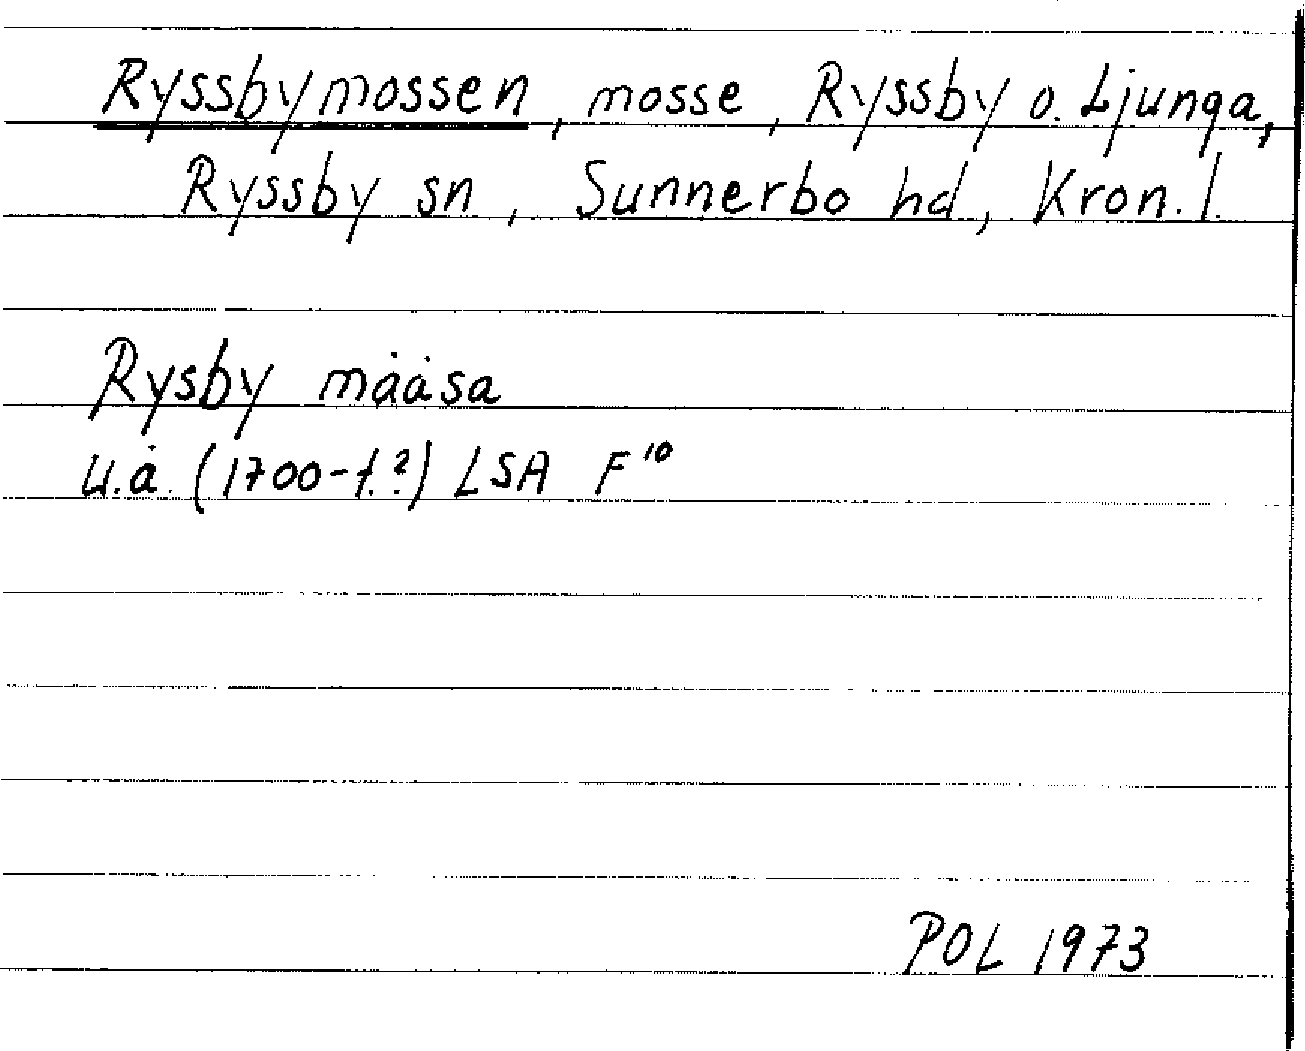 Ryssbymossen, mosse, Ryssby o. Ljunga,
Ryssby sn, Sunnerbo hd, Kron. l.
Rysby mååsa
u.å. (1700-t.?) LSA F¹⁰
POL 1973